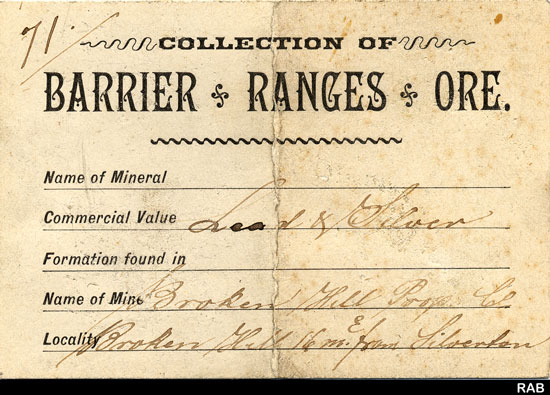 71/
COLLECTION OF
BARRIER RANGES ORE.
Name of Mineral
Commercial Value Lead & Silver
Formation found in
Name of Mine Broken Hill Prop. Co
Locality Broken Hill 16 m. E from Silverton
RAB